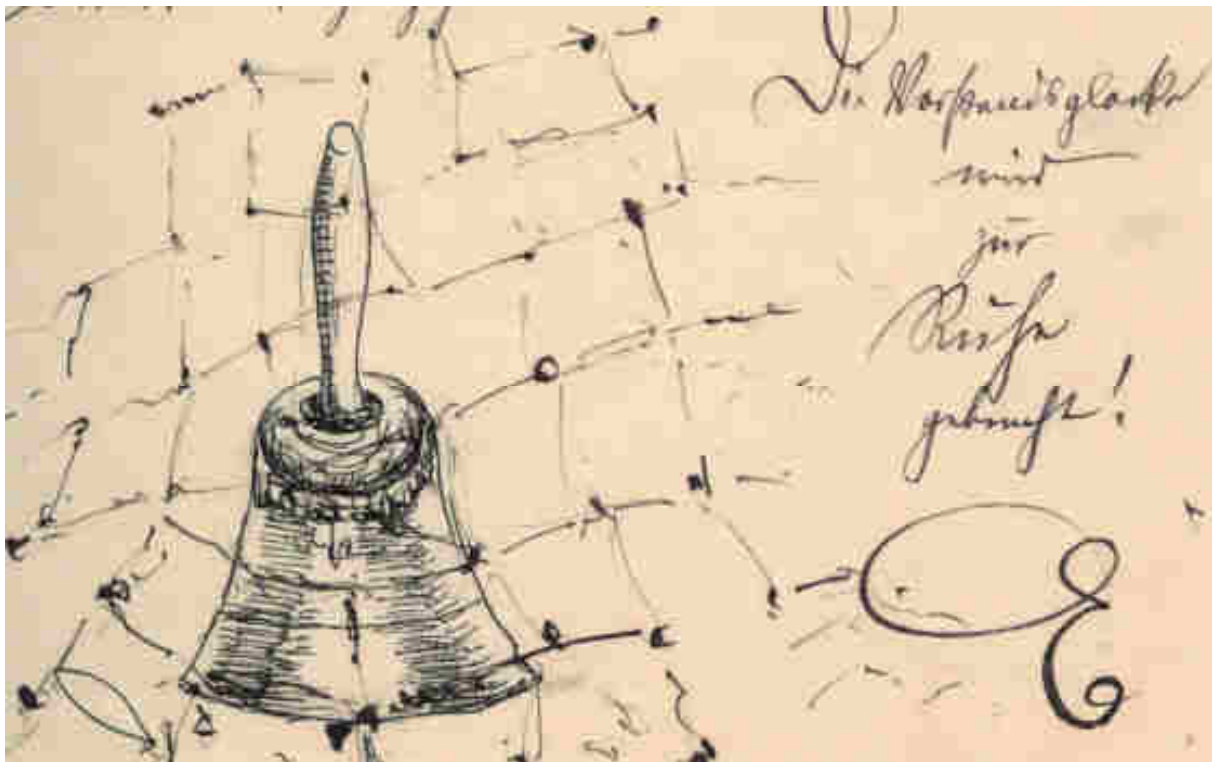 Die Vorstandsglocke
wird
zur
Ruhe
gebracht!